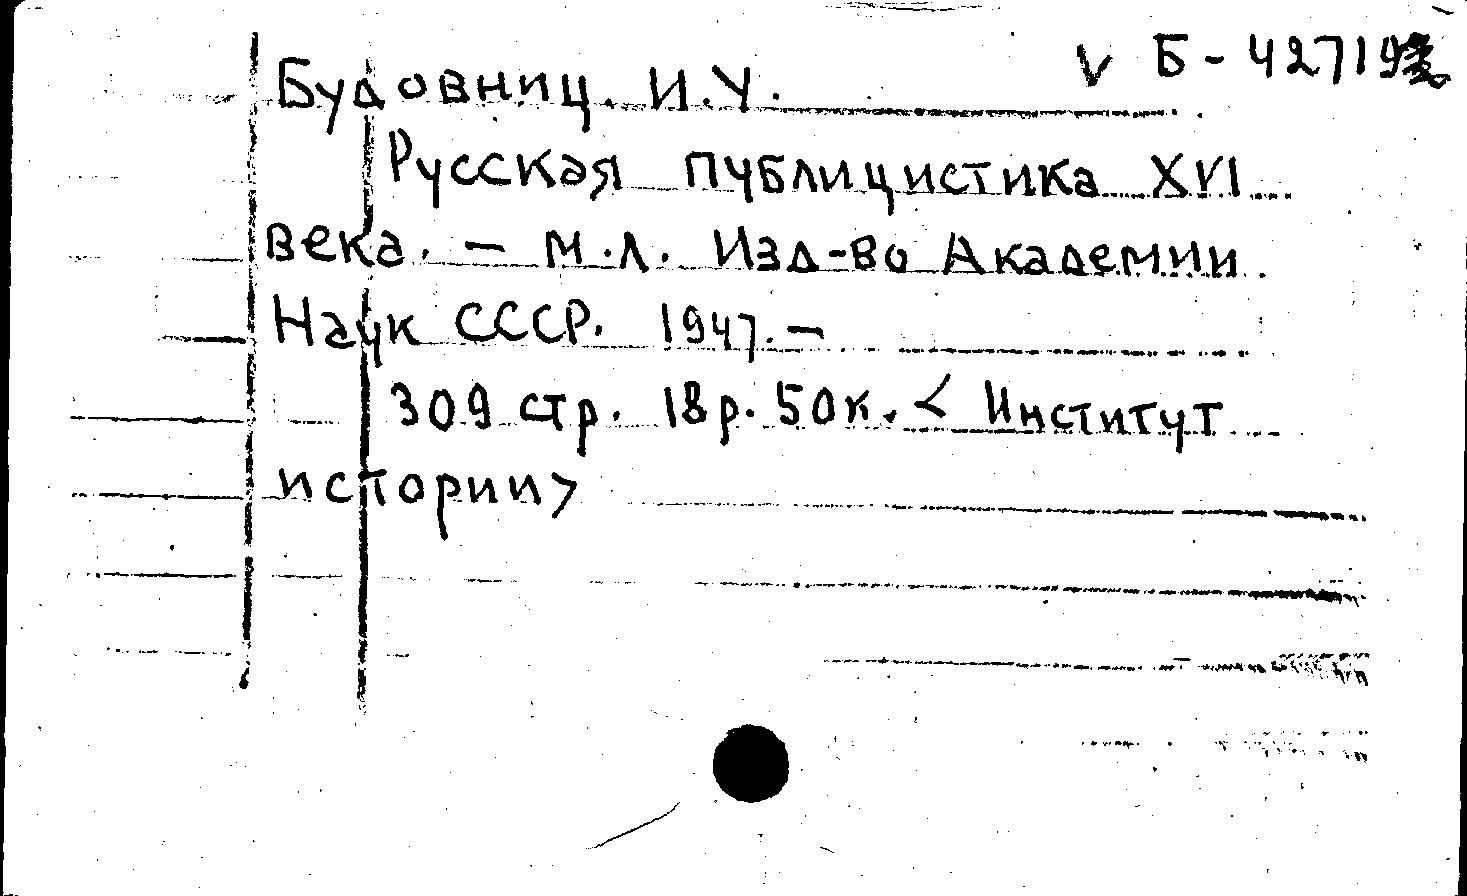 V Б-42719
Будовниц. И.У.
Русская публицистика XVI
века. — М.Л. Изд-во Академии
Наук СССР. 1947. —
309 стр. 18р. 50к. < Институт
истории>